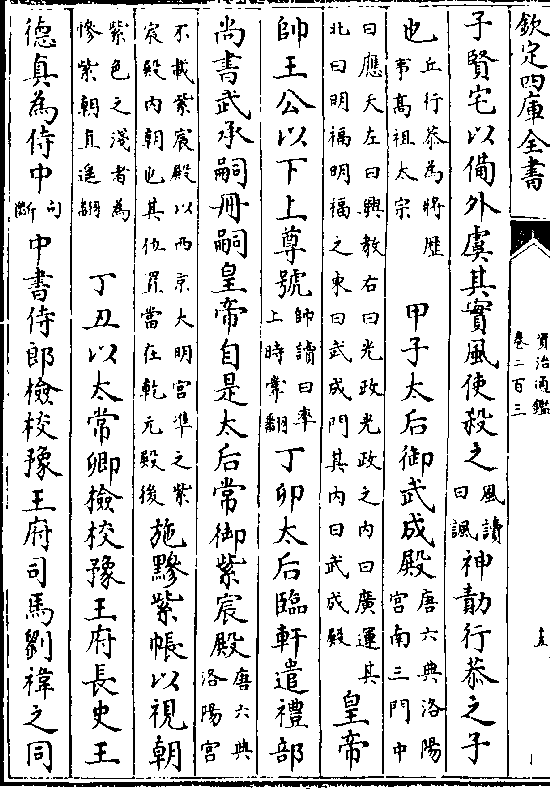 欽定四庫全書
資治通鑑
卷二百三
子賢宅以備外虞其實風使殺之風讀曰諷神勣行恭之子
也丘行恭為將歷事高祖太宗甲子太后御武成殿唐六典洛陽宮南三門中
曰應天左曰興教右曰光政光政之內曰廣運其北曰明福明福之東曰武成門其內曰武成殿皇帝
帥王公以下上尊號帥讀曰率上時掌翻丁卯太后臨軒遣禮部
尚書武承嗣冊嗣皇帝自是太后常御紫宸殿唐六典洛陽宮
不載紫宸殿以西京大明宮準之紫宸殿內朝也其位置當在乾元殿後施黲紫帳以視朝
紫色之淺者為慘紫朝直遙翻丁丑以太常卿檢校豫王府長史王
德真為侍中句斷中書侍郎檢校豫王府司馬劉禕之同